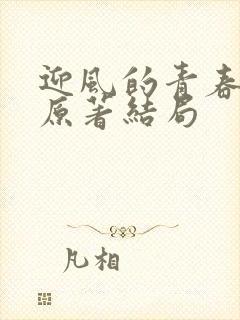 迎風的青春
原著結局
凡相